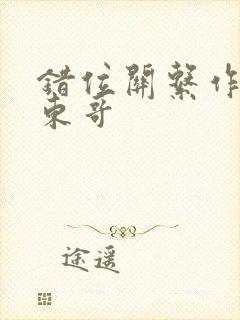 错位關繫作
東哥
途遥